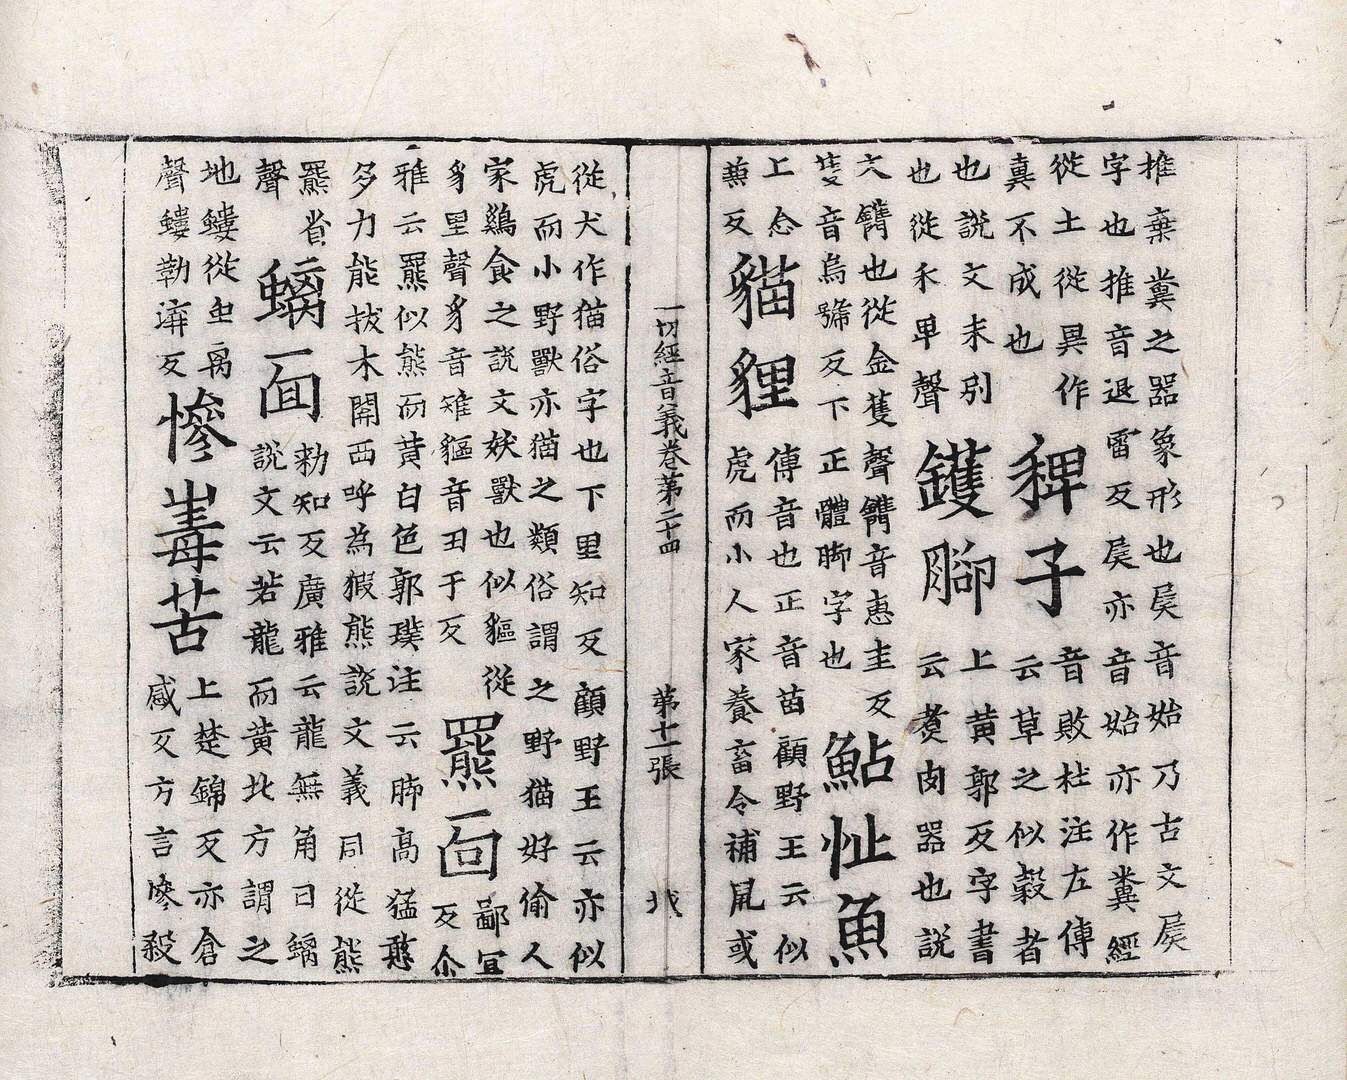 推棄糞之器象形也𡱁音始乃古文𡱁
字也推音退雷反𡱁亦音始亦作糞經
從土從異作
真不成也
稗子
音敗杜注左傳
云草之似穀者
也說文未別
也從禾卑聲
鑊腳
上黃郭反字書
云煑肉器也說
文鑴也從金蒦聲鑴音惠圭反
蒦音烏虢反下正體脚字也
鮎魚
上念
蒹反
貓貍
傳音也正音苗顧野王云似
虎而小人家養畜令捕鼠或
一切經音義卷第二十四 第十一張
從犬作猫俗字也下里知反顧野王云亦似
虎而小野獸亦猫之類俗謂之野猫好偷人
家鷄食之說文妖獸也似貙從
豸里聲豸音雉貙音丑于反
羆面
鄙宜
反尒
雅云羆似熊而黃白色郭璞注云脚高猛憨
多力能拔木關西呼為猳熊說文義同從熊
羆省
聲
螭面
勑知反廣雅云龍無角曰螭
說文云若龍而黃北方謂之
地螻從虫离
聲螻勒溝反
慘毒苦
上楚錦反亦倉
感反方言慘殺